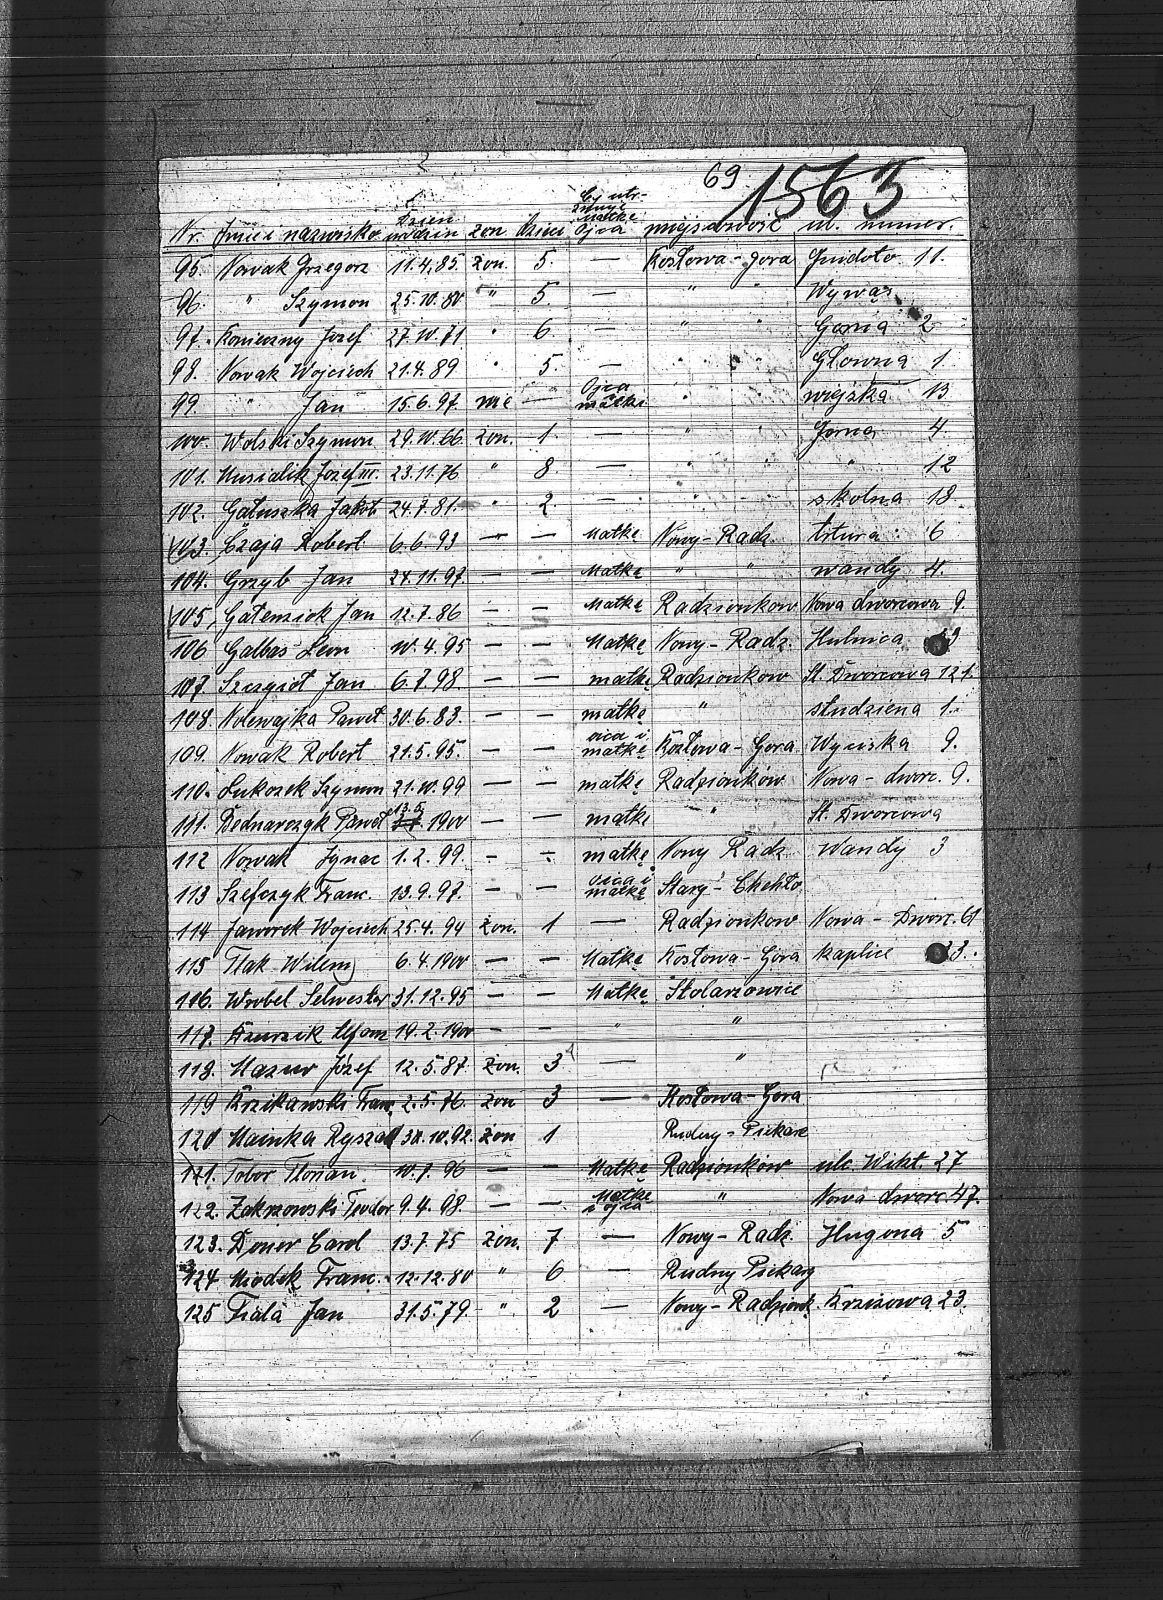 69 1563
Nr. Imię i nazwisko Dzień urodzin żon dzieci Czy utrzymuje matkę ojca miejscowość ul. numer.
95. Nowak Grzegorz 11.4.85. żon. 5. — Kozłowa-Gora Guidoto 11.
96. " Szymon 25.10.80 " 5. — " "
97. Konieczny Jozef 27.10.71 " 6. — " " Gorna 2
98. Nowak Wojciech 21.4.89 " 5. — " " Głowna 1.
99. " Jan 15.6.97. nie — Ojca matkę " " wiejska 13.
100. Wolski Szymon 29.10.66. żon. 1. — " " Gorna 4.
101. Musialik Jozef III. 23.11.76 " 8 — " " " 12
102. Gałuszka Jakob 24.7.81. " 2. — " " skolna 18.
103. Czaja Robert 6.6.93 — — Matkę Nowy-Radz. 6
104. Grzyb Jan 24.11.97. — — Matkę " " wandy 4.
105. Jan 12.7.86 — — Matkę Radzionkow Nowa dworcowa 9.
106 Galbas Leon 10.4.95 — — Matkę Nowy-Radz. Hulnica
107. Szczygioł Jan 6.7.98. — — matkę Radzionkow St. Dworcowa 121.
108. Nolewajka Paweł 30.6.83. — — matkę " studziena 1.
109. Nowak Robert 21.5.95. — — ojca i matkę Kozłowa-Gora 9.
110. Lukoszek Szymon 21.10.99 — — matkę Radzionków Nowa-dworc. 9.
111. Bednarczyk Paweł 13.5. 1900 — — matkę " St. Dworcowa
112 Nowak Ignac 1.2.99. — — matkę Nowy Radz. Wandy 3
113 Szefczyk Franc. 13.9.97. — — ojca i matkę Stary-Chehło
114 Jaworek Wojciech 25.4.94 żon. 1 — Radzionkow Nowa-Dworc. 61
115 Tlak Wilem 6.4.1900 — — Matkę Kozłowa-Gora kaplice 33.
116. Wrobel Selwester 31.12.95 — — Matkę Stolarzowice
117. 19.2.1900 — — " "
118. Mazur Józef 12.5.87 żon. 3 — "
119 Franc. 2.5.76. żon 3 — Kozłowa-Gora
120 Mainka Ryszard 30.10.92. żon 1 Rudny-Piekare
121. Tobor Florian. 10.7.96 — — Matkę Radzionków ulc. Wikt. 27
122. Zakrzowski Teodor 9.4.98. — — Matkę i ojca " Nowa dworc 47.
123. Doner Carol 13.7.75 żon. 7 — Nowy-Radz. Hugona 5
124 Miodek Franc. 12.12.80 " 6 — Rudny Piekary
125 Fiala Jan 31.5.79. " 2 — Nowy-Radzionk. Krzizowa 23.